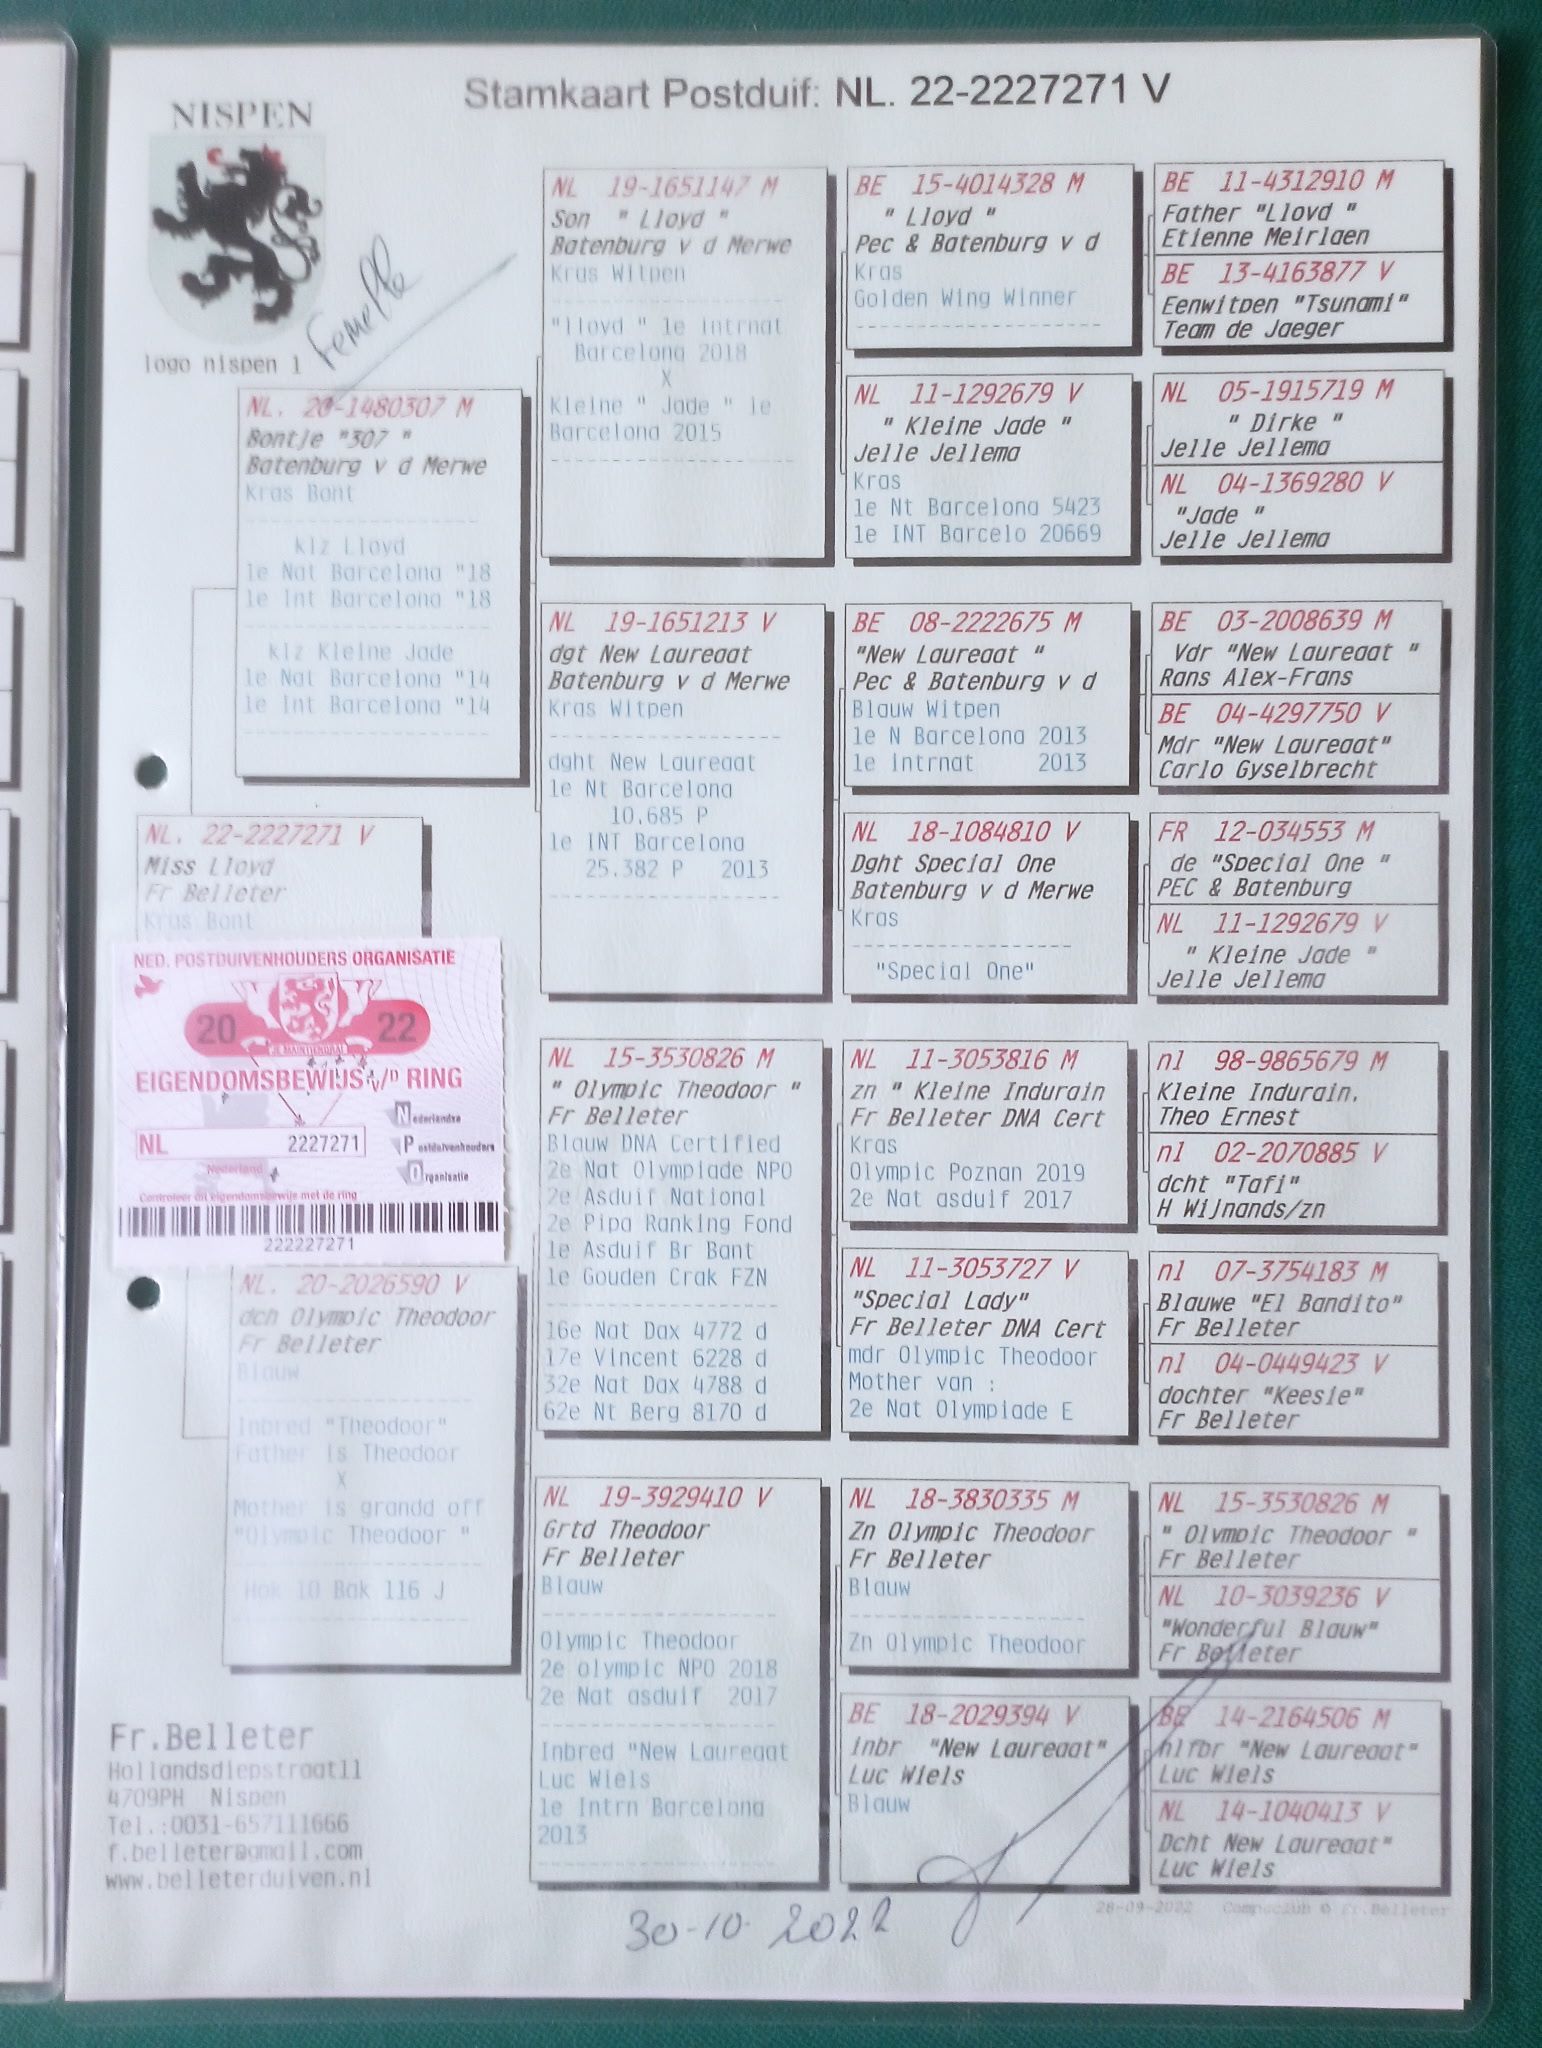 Stamkaart Postduif: NL. 22-2227271 V
NISPEN
logo nispen 1
Femelle
NL. 20-1480307 M
Bontje "307 "
Batenburg v d Merwe
Kras Bont
klz Lloyd
1e Nat Barcelona "18
1e Int Barcelona "18
klz Kleine Jade
1e Nat Barcelona "14
1e Int Barcelona "14
NL. 22-2227271 V
Miss Lloyd
Fr Belleter
Kras Bont
NED. POSTDUIVENHOUDERS ORGANISATIE
20 22
JE MAINTIENDRAI
EIGENDOMSBEWIJS v/D RING
NL 2227271
Nederland
Nederlandse
Postduivenhouders
Organisatie
Controleer dit eigendomsbewijs met de ring
222227271
NL. 20-2026590 V
dch Olympic Theodoor
Fr Belleter
Blauw
Inbred "Theodoor"
Father is Theodoor
X
Mother is grandd off
"Olympic Theodoor "
Hok 10 Bak 116 J
Fr.Belleter
Hollandsdiepstraat11
4709PH Nispen
Tel.:0031-657111666
f.belleter@gmail.com
www.belleterduiven.nl
NL 19-1651147 M
Son " Lloyd "
Batenburg v d Merwe
Kras Witpen
"lloyd " 1e Intrnat
Barcelona 2018
X
Kleine " Jade " 1e
Barcelona 2015
NL 19-1651213 V
dgt New Laureaat
Batenburg v d Merwe
Kras Witpen
dght New Laureaat
1e Nt Barcelona
10.685 P
1e INT Barcelona
25.382 P 2013
NL 15-3530826 M
" Olympic Theodoor "
Fr Belleter
Blauw DNA Certified
2e Nat Olympiade NPO
2e Asduif National
2e Pipa Ranking Fond
1e Asduif Br Bant
1e Gouden Crak FZN
16e Nat Dax 4772 d
17e Vincent 6228 d
32e Nat Dax 4788 d
62e Nt Berg 8170 d
NL 19-3929410 V
Grtd Theodoor
Fr Belleter
Blauw
Olympic Theodoor
2e olympic NPO 2018
2e Nat asduif 2017
Inbred "New Laureaat
Luc Wiels
1e Intrn Barcelona
2013
BE 15-4014328 M
" Lloyd "
Pec & Batenburg v d
Kras
Golden Wing Winner
NL 11-1292679 V
" Kleine Jade "
Jelle Jellema
Kras
1e Nt Barcelona 5423
1e INT Barcelo 20669
BE 08-2222675 M
"New Laureaat "
Pec & Batenburg v d
Blauw Witpen
1e N Barcelona 2013
1e Intrnat 2013
NL 18-1084810 V
Dght Special One
Batenburg v d Merwe
Kras
"Special One"
NL 11-3053816 M
zn " Kleine Indurain
Fr Belleter DNA Cert
Kras
Olympic Poznan 2019
2e Nat asduif 2017
NL 11-3053727 V
"Special Lady"
Fr Belleter DNA Cert
mdr Olympic Theodoor
Mother van :
2e Nat Olympiade E
NL 18-3830335 M
Zn Olympic Theodoor
Fr Belleter
Blauw
Zn Olympic Theodoor
BE 18-2029394 V
inbr "New Laureaat"
Luc Wiels
Blauw
BE 11-4312910 M
Father "Lloyd "
Etienne Meirlaen
BE 13-4163877 V
Eenwitpen "Tsunami"
Team de Jaeger
NL 05-1915719 M
" Dirke "
Jelle Jellema
NL 04-1369280 V
"Jade "
Jelle Jellema
BE 03-2008639 M
Vdr "New Laureaat "
Rans Alex-Frans
BE 04-4297750 V
Mdr "New Laureaat"
Carlo Gyselbrecht
FR 12-034553 M
de "Special One "
PEC & Batenburg
NL 11-1292679 V
" Kleine Jade "
Jelle Jellema
nl 98-9865679 M
Kleine Indurain.
Theo Ernest
nl 02-2070885 V
dcht "Tafi"
H Wijnands/zn
nl 07-3754183 M
Blauwe "El Bandito"
Fr Belleter
nl 04-0449423 V
dochter "Keesie"
Fr Belleter
NL 15-3530826 M
" Olympic Theodoor "
Fr Belleter
NL 10-3039236 V
"Wonderful Blauw"
Fr Belleter
BE 14-2164506 M
hlfbr "New Laureaat"
Luc Wiels
NL 14-1040413 V
Dcht New Laureaat"
Luc Wiels
28-09-2022 Compuclub © Fr.Belleter
30-10-2022